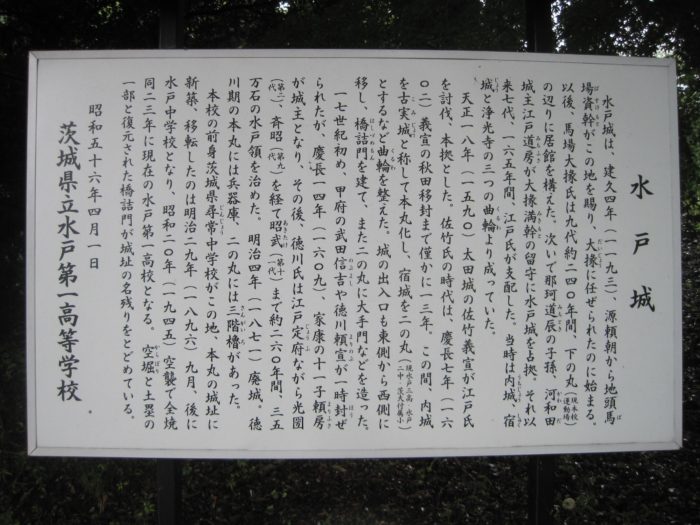 水戸城
水戸城は、建久四年（一一九三）、源頼朝から地頭馬
場資幹がこの地を賜り、大掾に任ぜられたのに始まる。
以後、馬場大掾氏は九代約二四〇年間、下の丸（現本校運動場）
の辺りに居館を構えた。次いで那珂道辰の子孫、河和田
城主江戸道房が大掾満幹の留守に水戸城を占拠。それ以
来七代、一六五年間、江戸氏が支配した。当時は内城、宿
城と浄光寺の三つの曲輪より成っていた。
天正一八年（一五九〇）太田城の佐竹義宣が江戸氏
を討伐、本拠とした。佐竹氏の時代は、慶長七年（一六
〇二）義宣の秋田移封まで僅かに一三年、この間、内城
を古実城と称して本丸化し、宿城を二の丸（現水戸三高・水戸二中・茨大付属小）
とするなど曲輪を整えた。城の出入口も東側から西側に
移し、橋詰門を建て、また二の丸に大手門などを造った。
一七世紀初め、甲府の武田信吉や徳川頼宣が一時封ぜ
られたが、慶長一四年（一六〇九）、家康の十一子頼房
が城主となり、その後、徳川氏は江戸定府ながら光圀
（第二代）、斉昭（第九代）を経て昭武（第十一代）まで約二六〇年間、三五
万石の水戸領を治めた。明治四年（一八七一）廃城。徳
川期の本丸には兵器庫、二の丸には三階櫓があった。
本校の前身茨城県尋常中学校がこの地、本丸の城址に
新築、移転したのは明治二九年（一八九六）九月、後に
水戸中学校となり、昭和二〇年（一九四五）空襲で全焼
同二三年に現在の水戸第一高校となる。空堀と土塁の
一部と復元された橋詰門が城址の名残りをとどめている。
昭和五十六年四月一日
茨城県立水戸第一高等学校